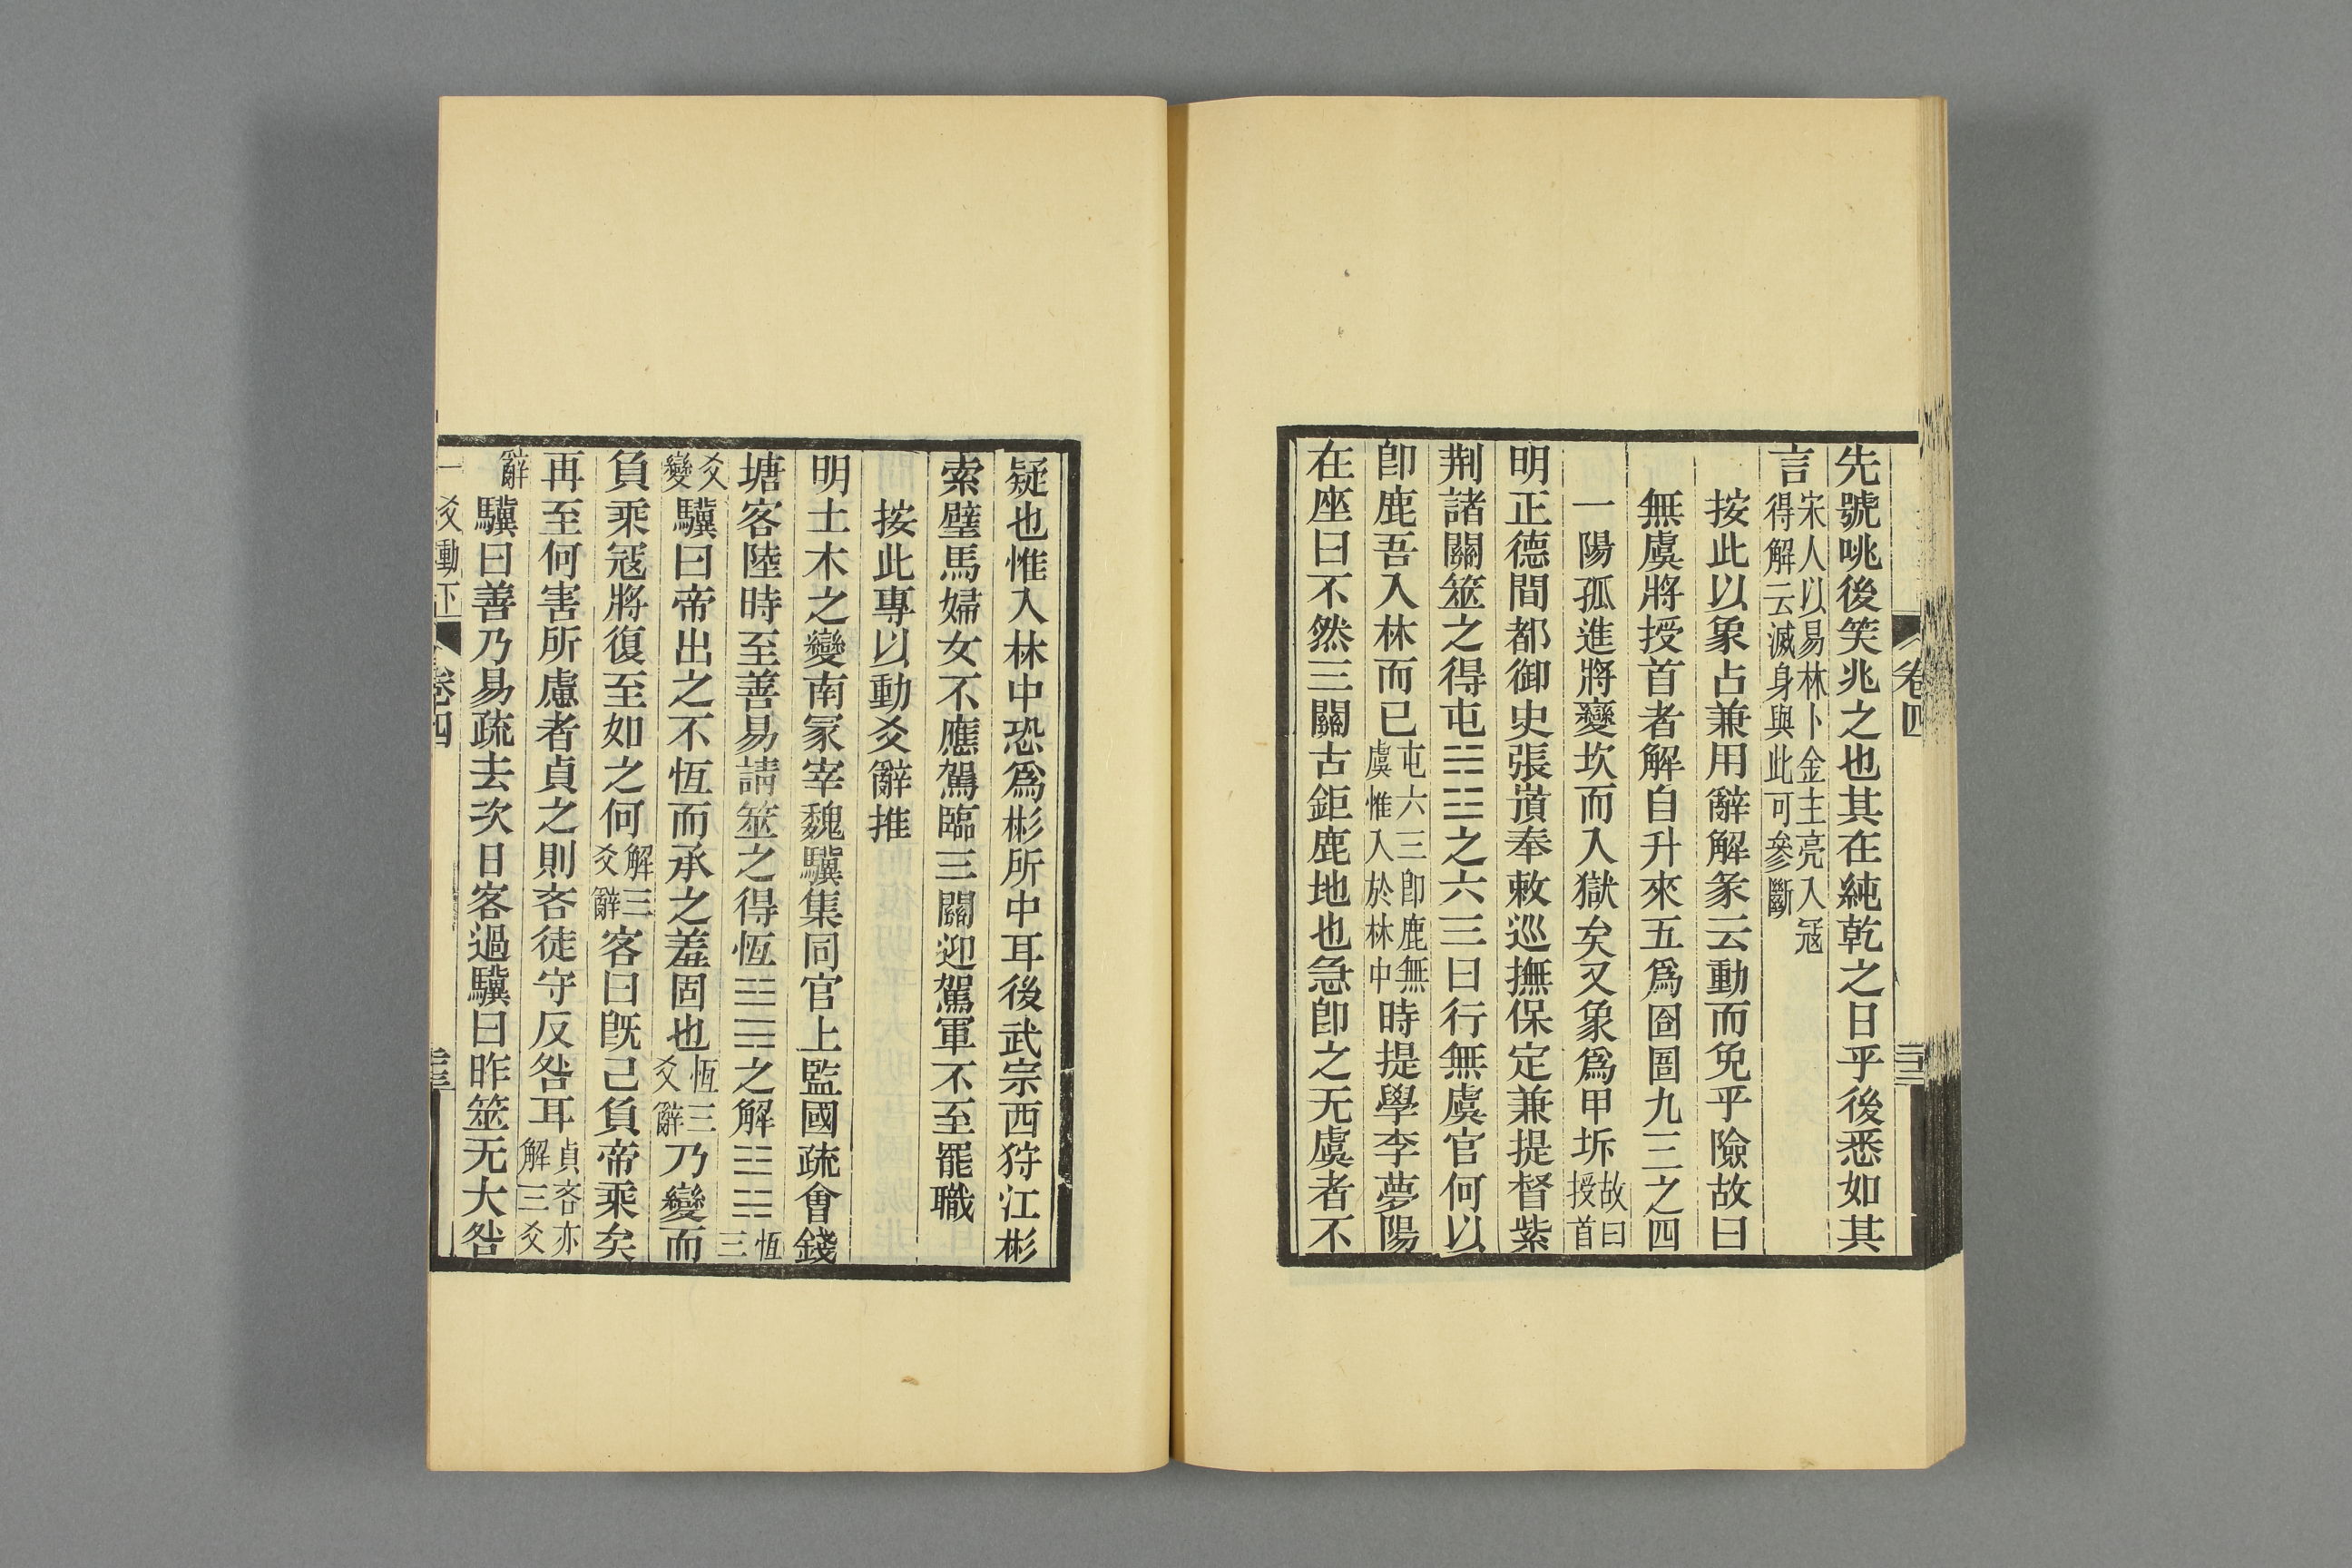 先號咷後笑兆之也其在純乾之日乎後悉如其
言宋人以易林卜金主亮入寇得解云滅身與此可參斷
按此以象占兼用辭解彖云動而免乎險故曰
無虞將授首者解自升來五爲囼圄九三之四
一陽孤進將變坎而入獄矣又象爲甲坼故曰授首
明正德間都御史張䕫奉敕巡撫保定兼提督紫
荆諸關筮之得屯䷂之六三曰行無虞官何以
卽鹿吾入林而已屯六三卽鹿無虞惟入於林中時提學李夢陽
在座曰不然三關古鉅鹿地也急卽之无虞者不
卷四
疑也惟入林中恐爲彬所中耳後武宗西狩江彬
索璧馬婦女不應駕臨三關迎駕軍不至罷職
按此專以動爻辭推
明土木之變南冢宰魏驥集同官上監國疏會錢
塘客陸時至善易請筮之得恆䷟之解䷧恆三
爻變驥曰帝出之不恆而承之羞固也恆三爻辭乃變而
負乘寇將復至如之何解三爻辭客曰旣已負帝乘矣
再至何害所慮者貞之則吝徒守反咎耳貞吝亦解三爻
辭驥曰善乃易疏去次日客過驥曰昨筮无大咎
爻動下
卷四